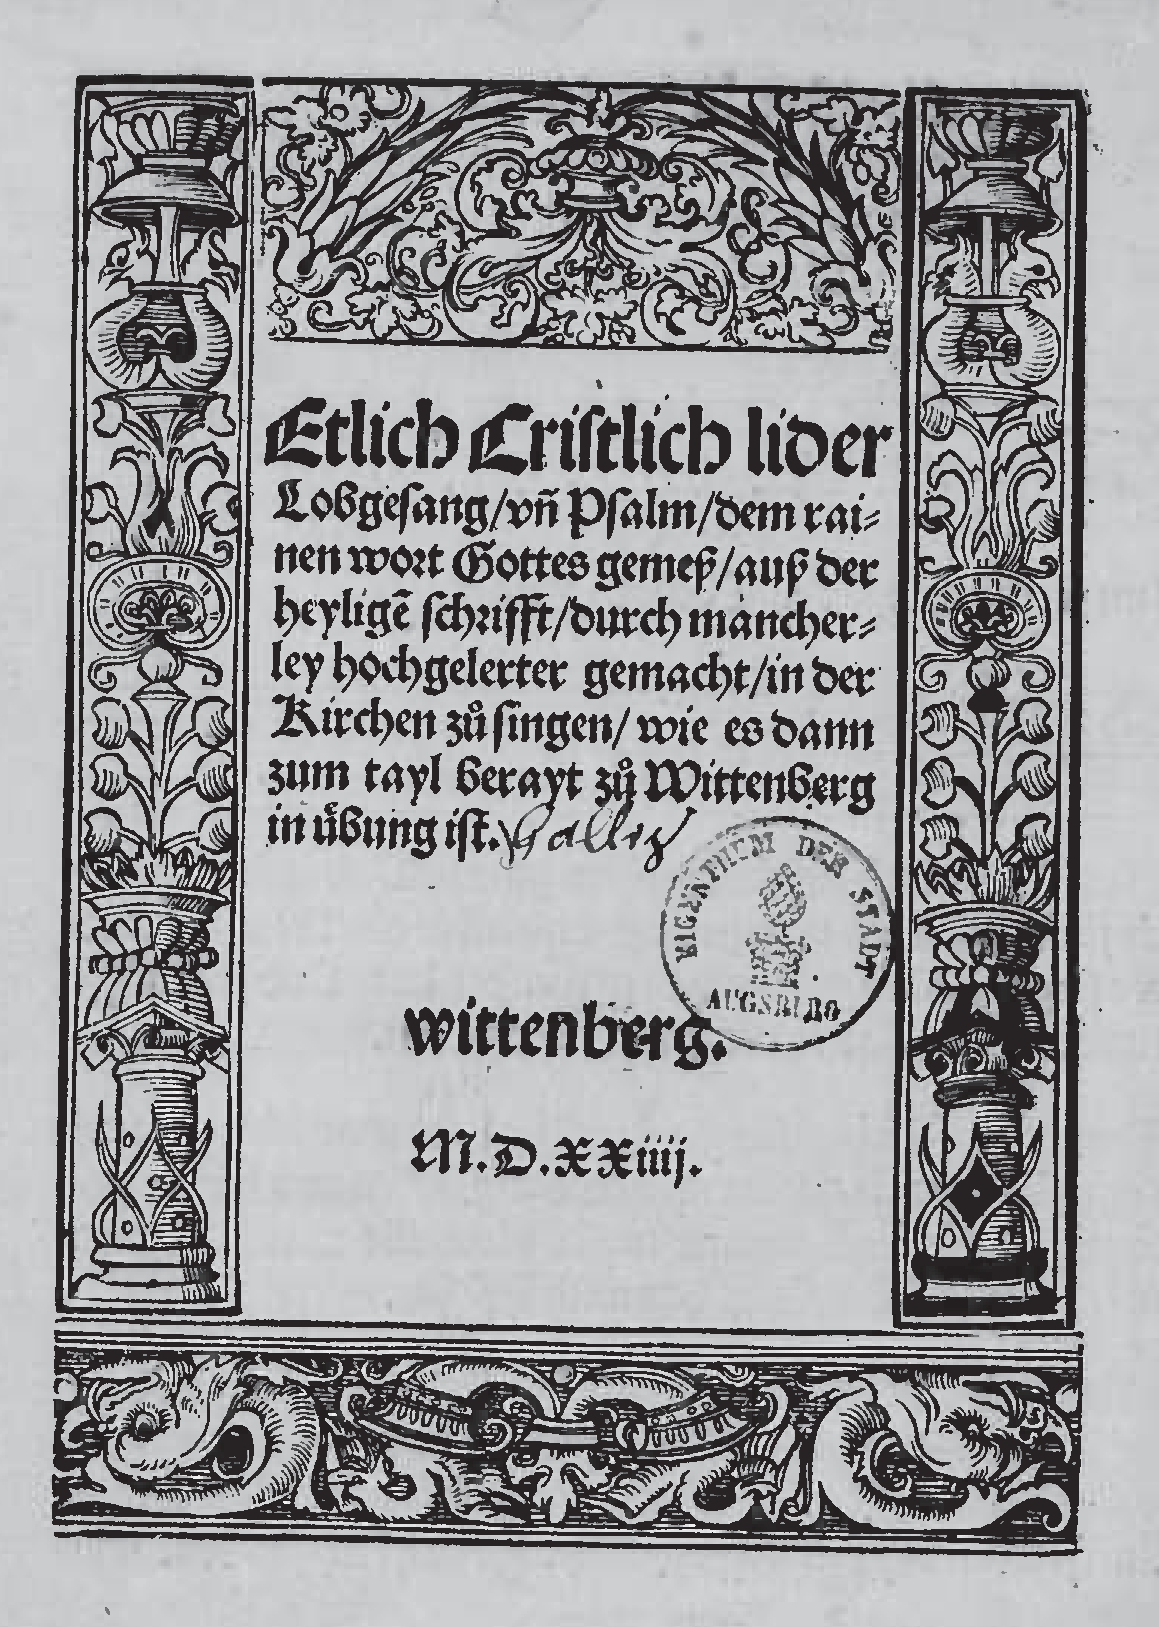 Etlich Cristlich lider
Lobgesang/vñ Psalm/dem rai⸗
nen wort Gottes gemeß/auß der
heyligẽ schrifft/durch mancher⸗
ley hochgelerter gemacht/in der
Kirchen zů singen/wie es dann
zum tayl berayt zů Wittenberg
in uͤbung ist.
EIGENTHUM DER STADT
AUGSBURG
Wittenberg.
M.D.XXiiij.